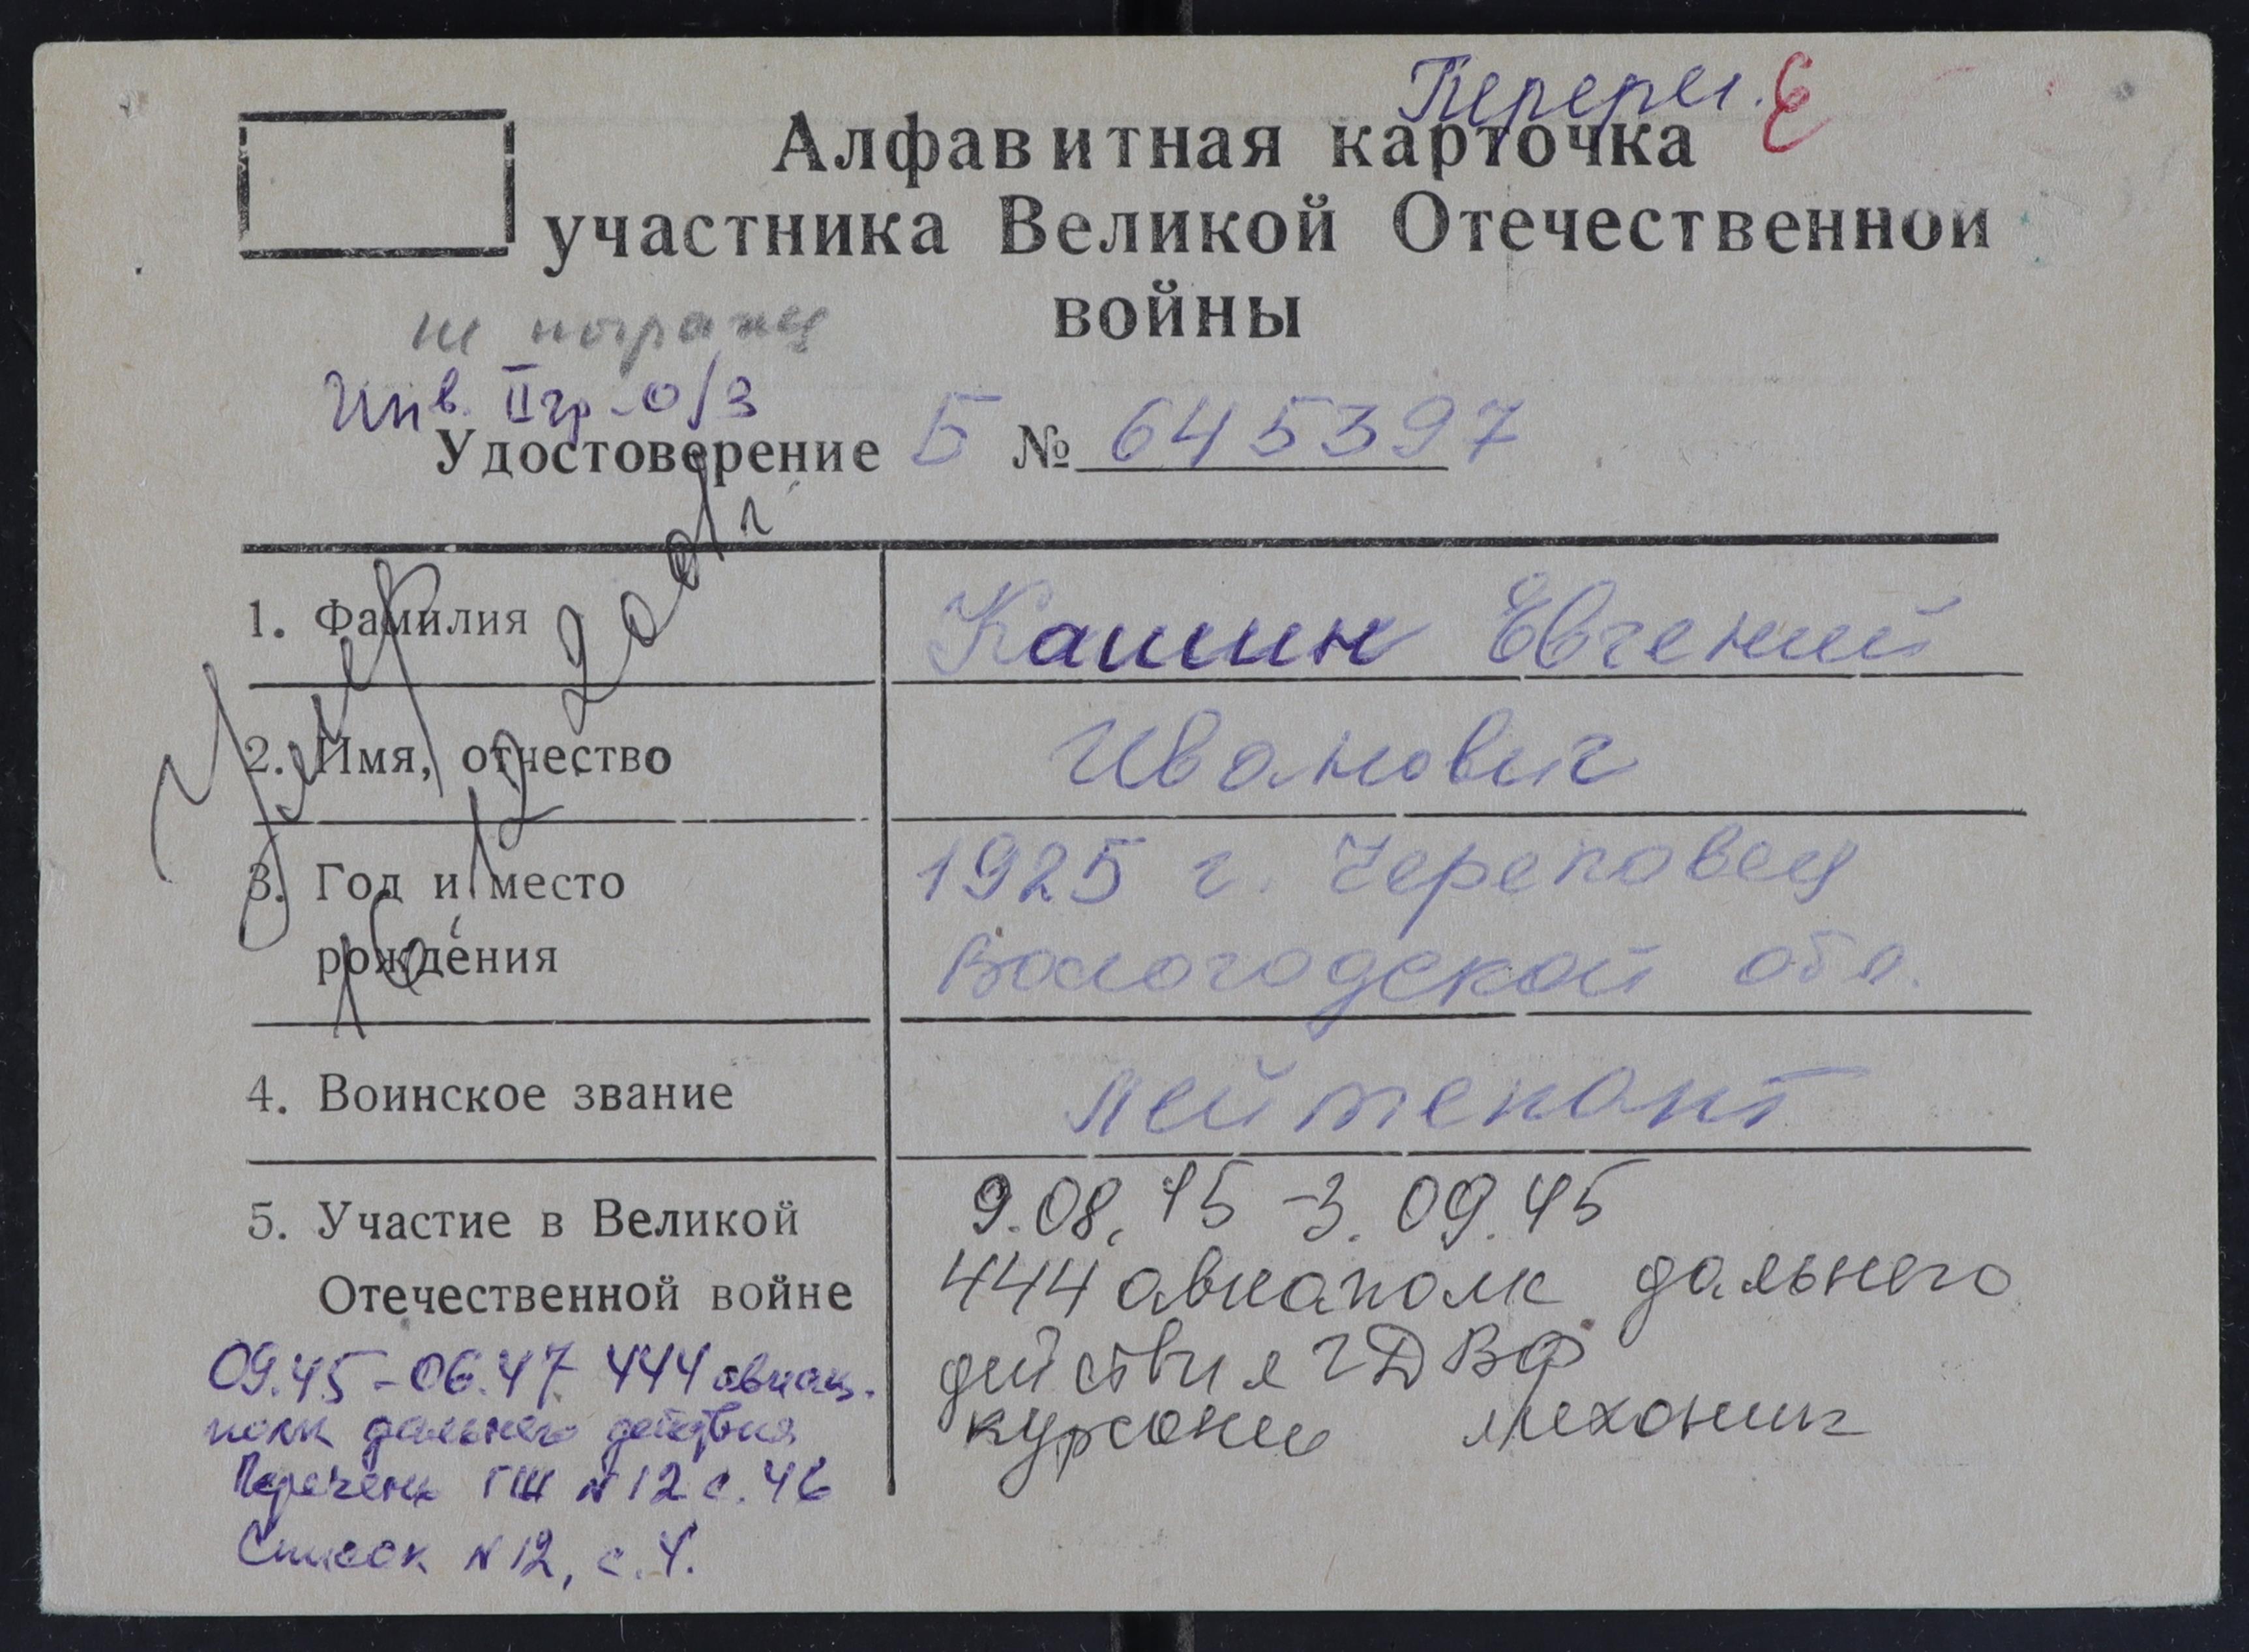 Перерег. Е
Алфавитная карточка
участника Великой Отечественной
войны
не награжд
Инв. II гр - о/з
Удостоверение Б № 645397
Умер 16.12.2001 г.
1. Фамилия Кашин Евгений
2. Имя, отчество Иванович
3. Год и место 1925 г. Череповец
рождения Вологодской обл.
4. Воинское звание лейтенант
5. Участие в Великой 9.08.45 - 3.09.45
Отечественной войне 444 авиаполк дальнего
действия ДВФ
механик
09.45 - 06.47 444 авиац.
полк дальнего действия
Перечень ГШ N 12 с. 46
Список N 12, с. 4.